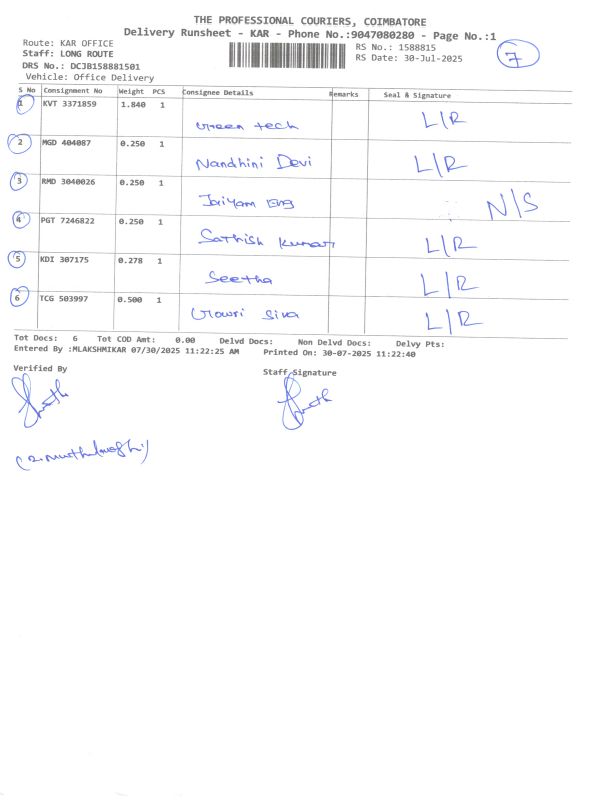 THE PROFESSIONAL COURIERS, COIMBATORE
Delivery Runsheet - KAR - Phone No.:9047080280 - Page No.:1
Route: KAR OFFICE
Staff: LONG ROUTE
DRS No.: DCJB158881501
Vehicle: Office Delivery
RS No.: 1588815
RS Date: 30-Jul-2025
7
S No Consignment No Weight PCS Consignee Details Remarks Seal & Signature
1 KVT 3371859 1.840 1
Green tech L/R
2 MGD 404087 0.250 1
Nandhini Devi L/R
3 RMD 3040026 0.250 1
Jaiyam Eng N/S
4 PGT 7246822 0.250 1
Sathish Kumar L/R
5 KDI 307175 0.278 1
Seetha L/R
6 TCG 503997 0.500 1
Gowri Siva L/R
Tot Docs: 6 Tot COD Amt: 0.00 Delvd Docs: Non Delvd Docs: Delvy Pts:
Entered By :MLAKSHMIKAR 07/30/2025 11:22:25 AM Printed On: 30-07-2025 11:22:40
Verified By
Staff Signature